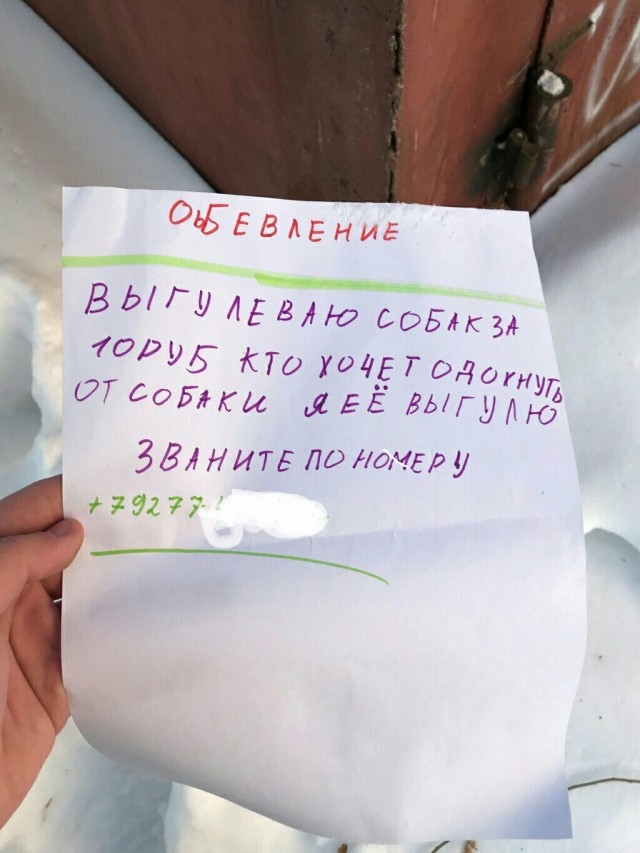 ОЬБЕВЛЕНИЕ
ВЫГУЛЕВАЮ СОБАК ЗА
10РУБ КТО ХОЧЕТ ОДОХНУТЬ
ОТ СОБАКИ Я ЕЁ ВЫГУЛЮ
ЗВАНИТЕ ПО НОМЕРУ
+79277